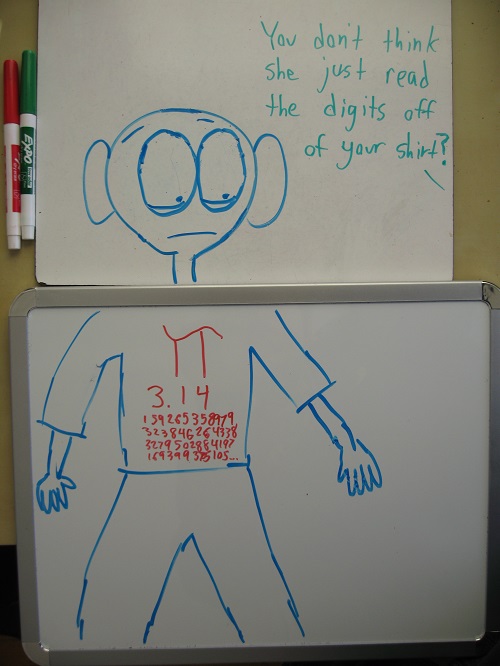 You don't think
she just read
the digits off
of your shirt?
EXPO
π
3.14
159265358979
323846264338
3279502884197
169399375105...